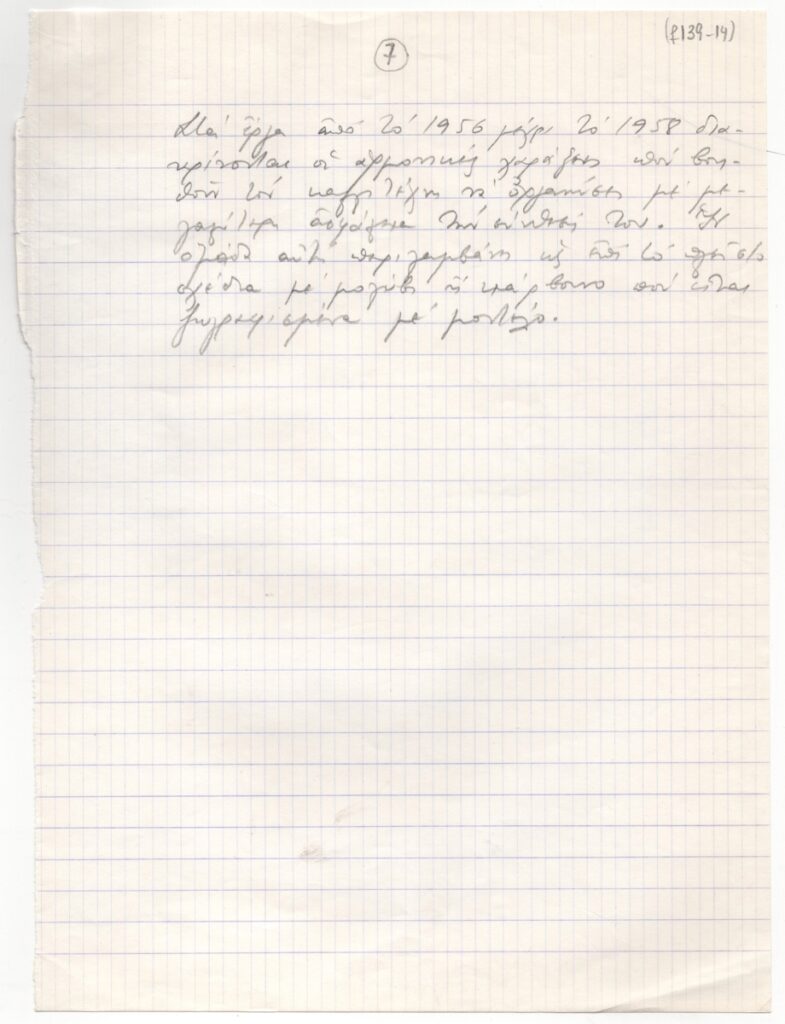 (f139-14)
7
Στά ἔργα ἀπό τό 1956 μέχρι τό 1958 δια-
κρίνονται οἱ ἁρμονικές χαράξεις πού βοη-
θοῦν τόν καλλιτέχνη νά ὀργανώσει μέ με-
γαλύτερη ἀσφάλεια τήν σύνθεσή του. Ἡ
ὁμάδα αὐτή περιλαμβάνει ὡς ἐπί τό πλεῖστο
σχέδια μέ μολύβι ἤ κάρβουνο πού εἶναι
ζωγραφισμένα μέ μοντέλο.